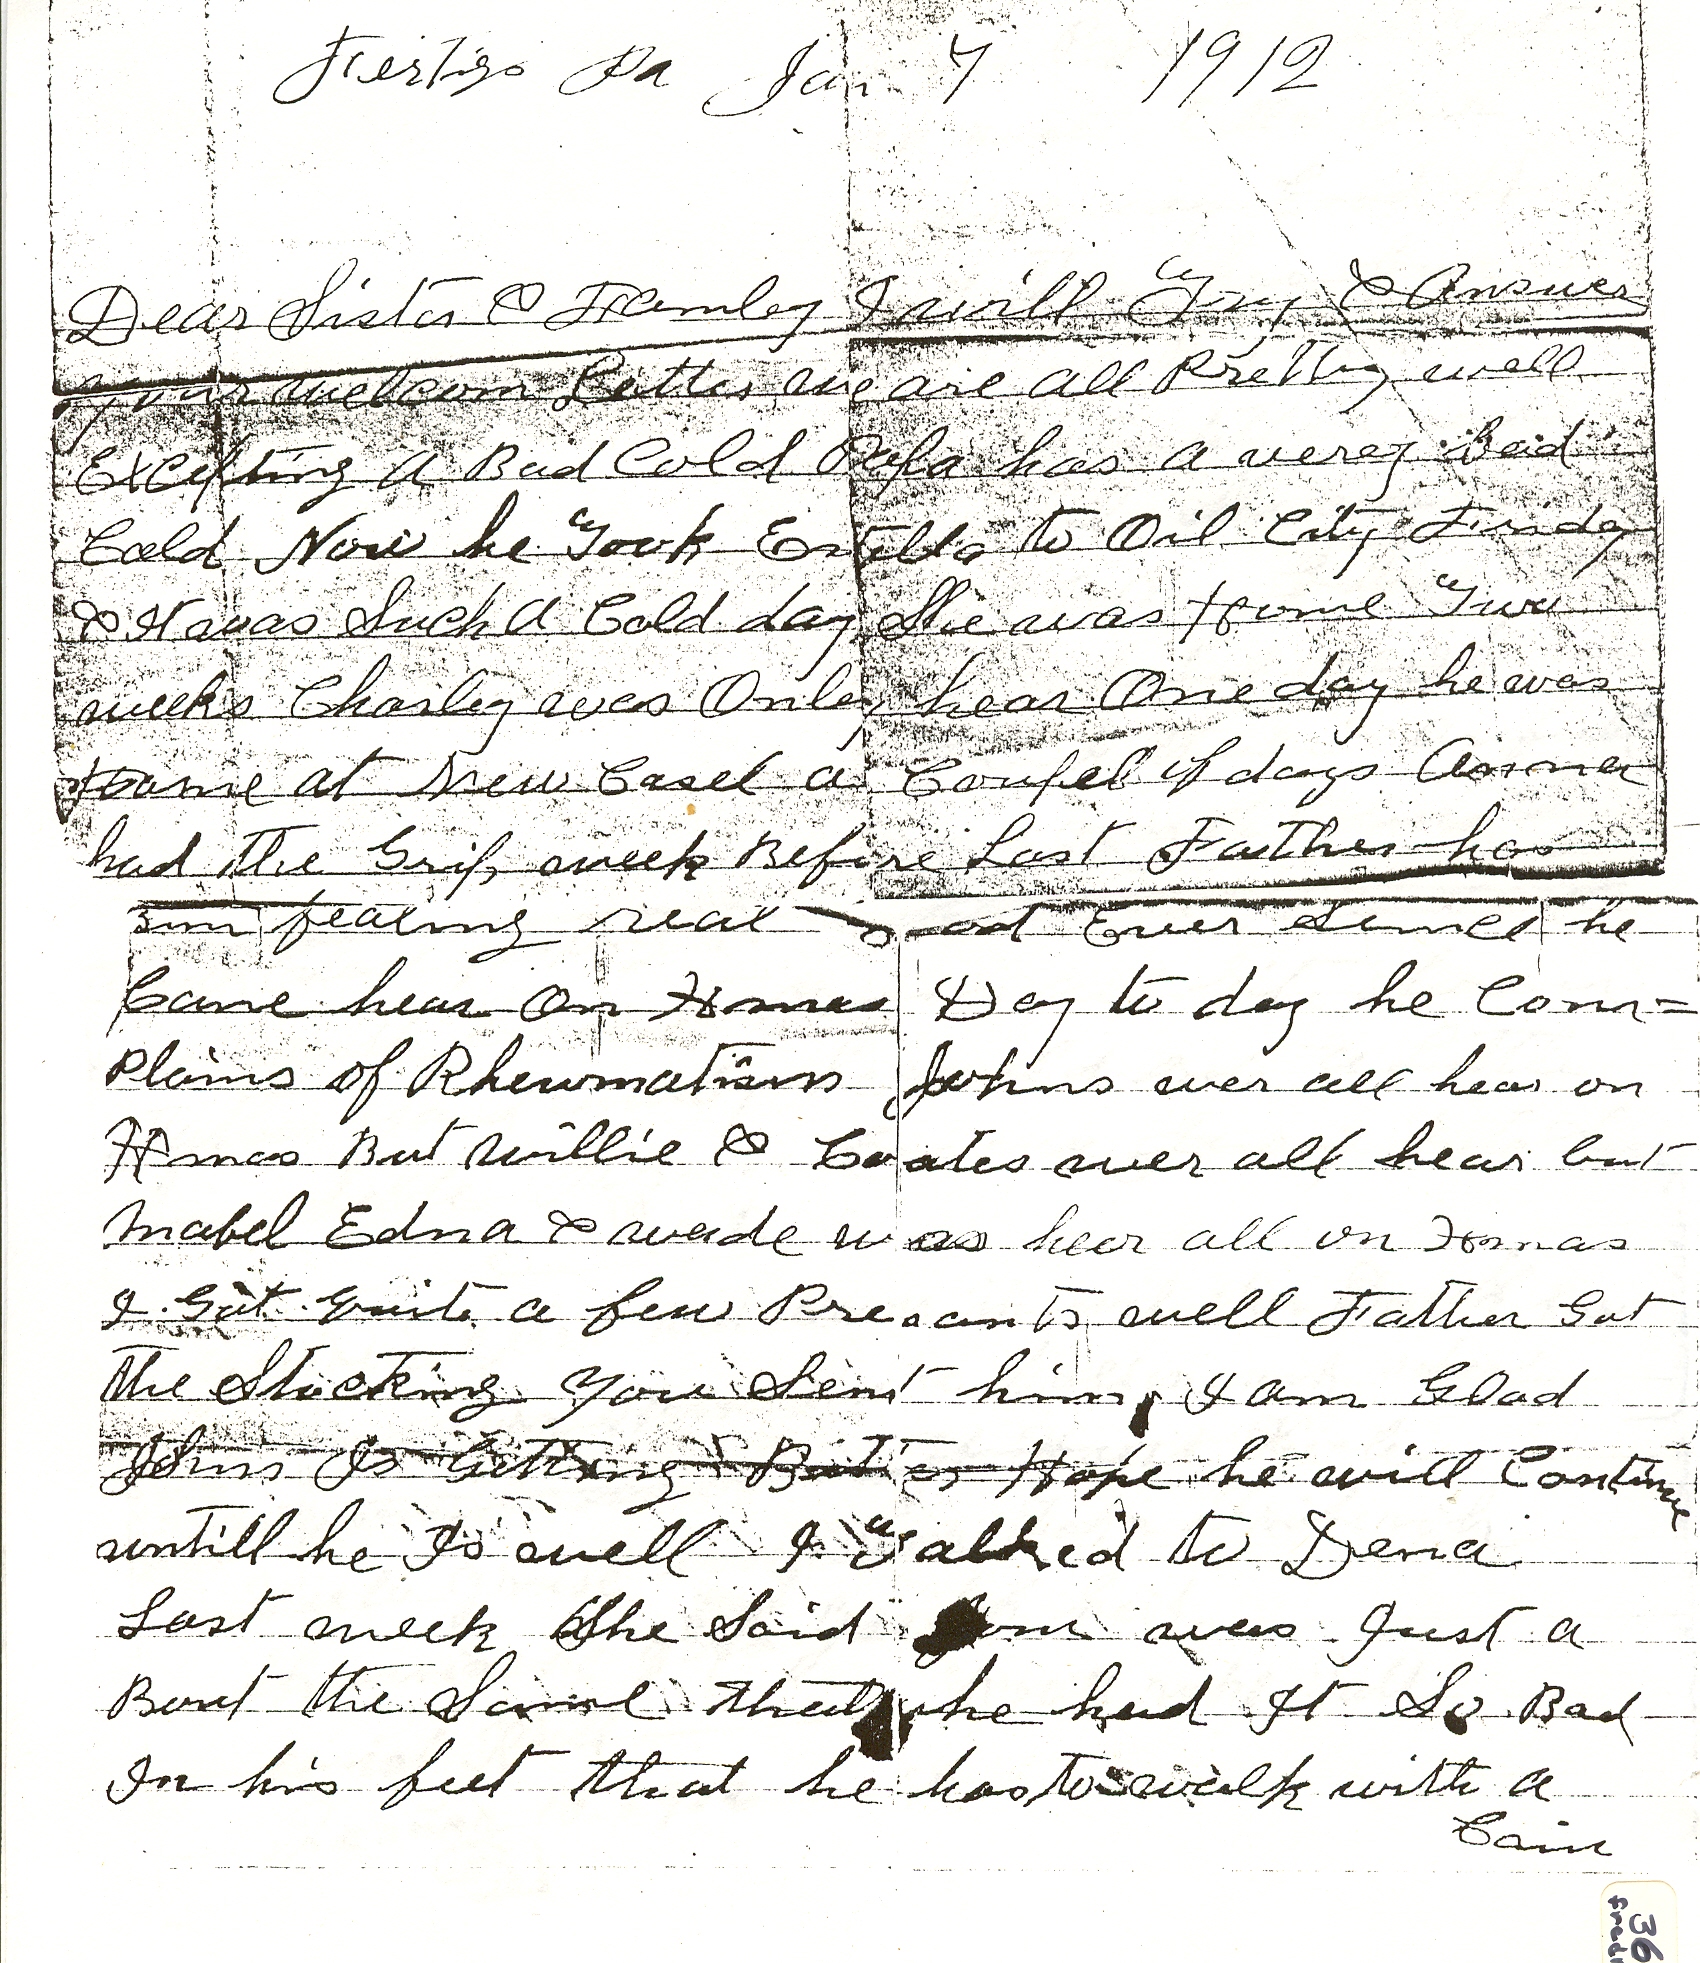 Fertigs Pa Jan 7 1912
Dear Sister & Famley I will Try & Answer
your welcom Letter we are all Pretty well
Excepting a Bad Cold Papa has a verey Bad
Cold Now he Took Estella to Oil City Friday
& It was Such a Cold day She was Home Two
weeks Charley was Onley hear One day he was
Home at New Casel a Coupel of days Anna
had the Grip week Before Last Father has
bin fealing real good Ever Since he
Came hear On Xmas Day to day he Com=
Plains of Rheumatism Johns wer all hear on
Xmas But Willie & Coates wer all hear but
Mabel Edna & Wade was hear all on Xmas
I Got Quite a few Presants well Father Got
the Stocking You Sent him, I am Glad
Johns Is Getting Better Hope he will Continue
untill he Is well I Talked to Dena
Last week She Said was Just a
Bout the Same that he had It So Bad
In his feet that he has to walk with a
Cain
36